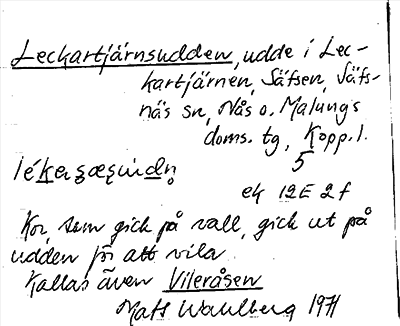 Leckartjärnsudden, udde i Lec-
kartjärnen, Säfsen, Säfs-
näs sn, Nås o. Malungs
doms. tg, Kopp. l.
5
ek 12E 2f
Kor, som gick på vall, gick ut på
udden för att vila.
Kallas även Vileråsen
Mats Wahlberg 1971